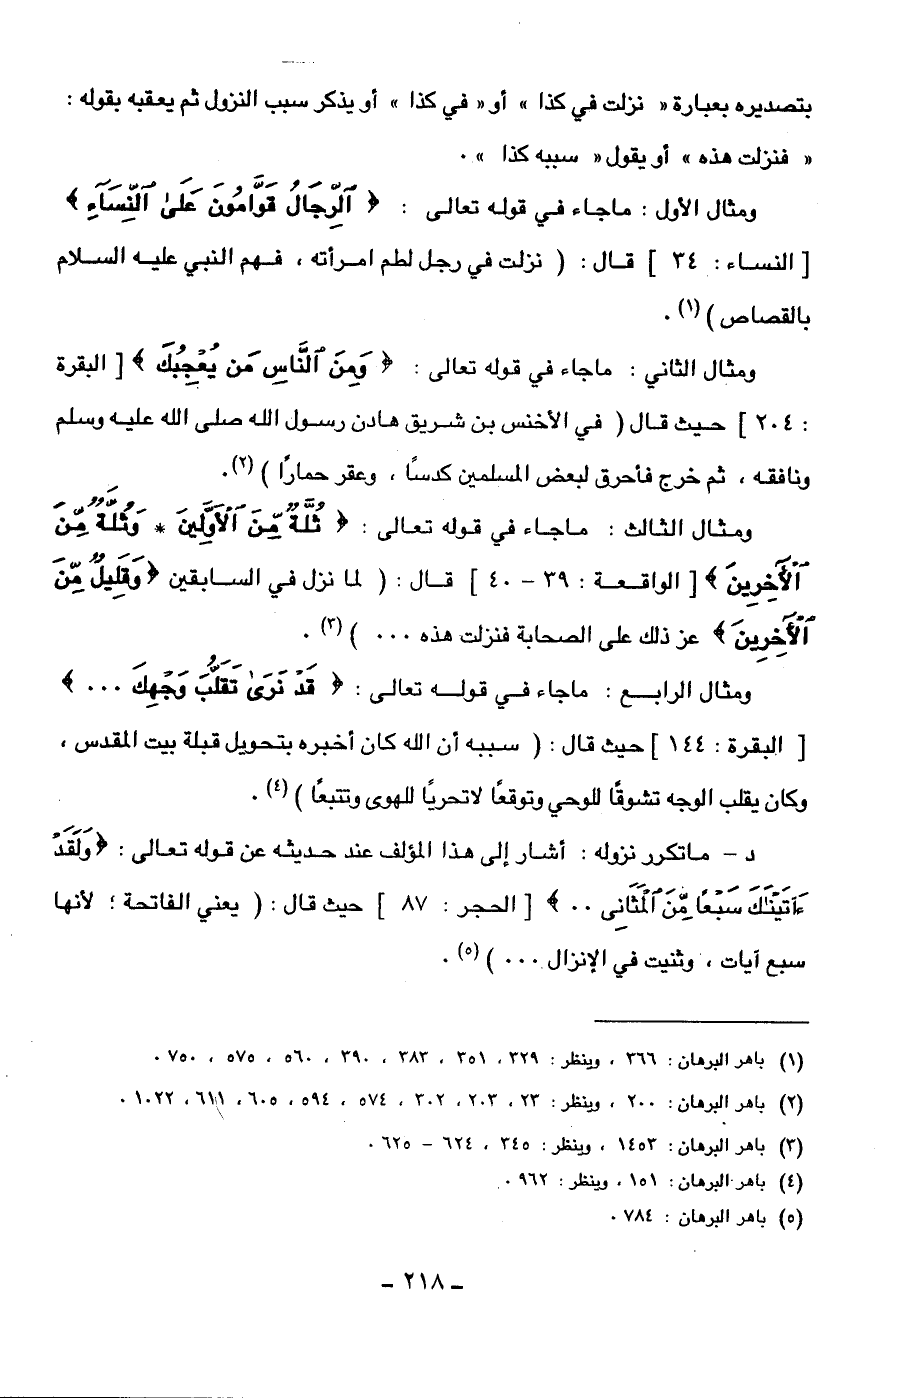 بتصديره بعبارة « نزلت في كذا » أو « في كذا » أو يذكر سبب النزول ثم يعقبه بقوله :
« فنزلت هذه » أو يقول « سببه كذا » .
ومثال الأول : ماجاء في قوله تعالى : ﴿ ٱلرِّجَالُ قَوَّٰمُونَ عَلَى ٱلنِّسَآءِ ﴾
[ النساء : ٣٤ ] قال : ( نزلت في رجل لطم امرأته ، فهم النبي عليه السلام
بالقصاص ) (١) .
ومثال الثاني : ماجاء في قوله تعالى : ﴿ وَمِنَ ٱلنَّاسِ مَن يُعْجِبُكَ ﴾ [ البقرة
: ٢٠٤ ] حيث قال ( في الأخنس بن شريق هادن رسول الله صلى الله عليه وسلم
ونافقه ، ثم خرج فأحرق لبعض المسلمين كدسًا ، وعقر حمارًا ) (٢) .
ومثال الثالث : ماجاء في قوله تعالى : ﴿ ثُلَّةٌ مِّنَ ٱلْأَوَّلِينَ * وَثُلَّةٌ مِّنَ
ٱلْأَخِرِينَ ﴾ [ الواقعة : ٣٩ – ٤٠ ] قال : ( لما نزل في السابقين ﴿ وَقَلِيلٌ مِّنَ
ٱلْأَخِرِينَ ﴾ عز ذلك على الصحابة فنزلت هذه ... ) (٣) .
ومثال الرابع : ماجاء في قوله تعالى : ﴿ قَدْ نَرَىٰ تَقَلُّبَ وَجْهِكَ ... ﴾
[ البقرة : ١٤٤ ] حيث قال : ( سببه أن الله كان أخبره بتحويل قبلة بيت المقدس ،
وكان يقلب الوجه تشوقًا للوحي وتوقعًا لاتحريًا للهوى وتتبعًا ) (٤) .
د – ماتكرر نزوله : أشار إلى هذا المؤلف عند حديثه عن قوله تعالى : ﴿ وَلَقَدْ
ءَاتَيْنَٰكَ سَبْعًا مِّنَ ٱلْمَثَانِى .. ﴾ [ الحجر : ٨٧ ] حيث قال : ( يعني الفاتحة ؛ لأنها
سبع آيات ، وثنيت في الإنزال ... ) (٥) .
(١) باهر البرهان : ٣٦٦ ، وينظر : ٣٢٩ ، ٣٥١ ، ٣٨٣ ، ٣٩٠ ، ٥٦٠ ، ٥٧٥ ، ٧٥٠ .
(٢) باهر البرهان : ٢٠٠ ، وينظر : ٢٣ ، ٢٠٣ ، ٣٠٢ ، ٥٧٤ ، ٥٩٤ ، ٦٠٥ ، ٦١١ ، ١٠٢٢ .
(٣) باهر البرهان : ١٤٥٣ ، وينظر : ٣٤٥ ، ٦٢٤ – ٦٢٥ .
(٤) باهر البرهان : ١٥١ ، وينظر : ٩٦٢ .
(٥) باهر البرهان : ٧٨٤ .
– ٢١٨ –